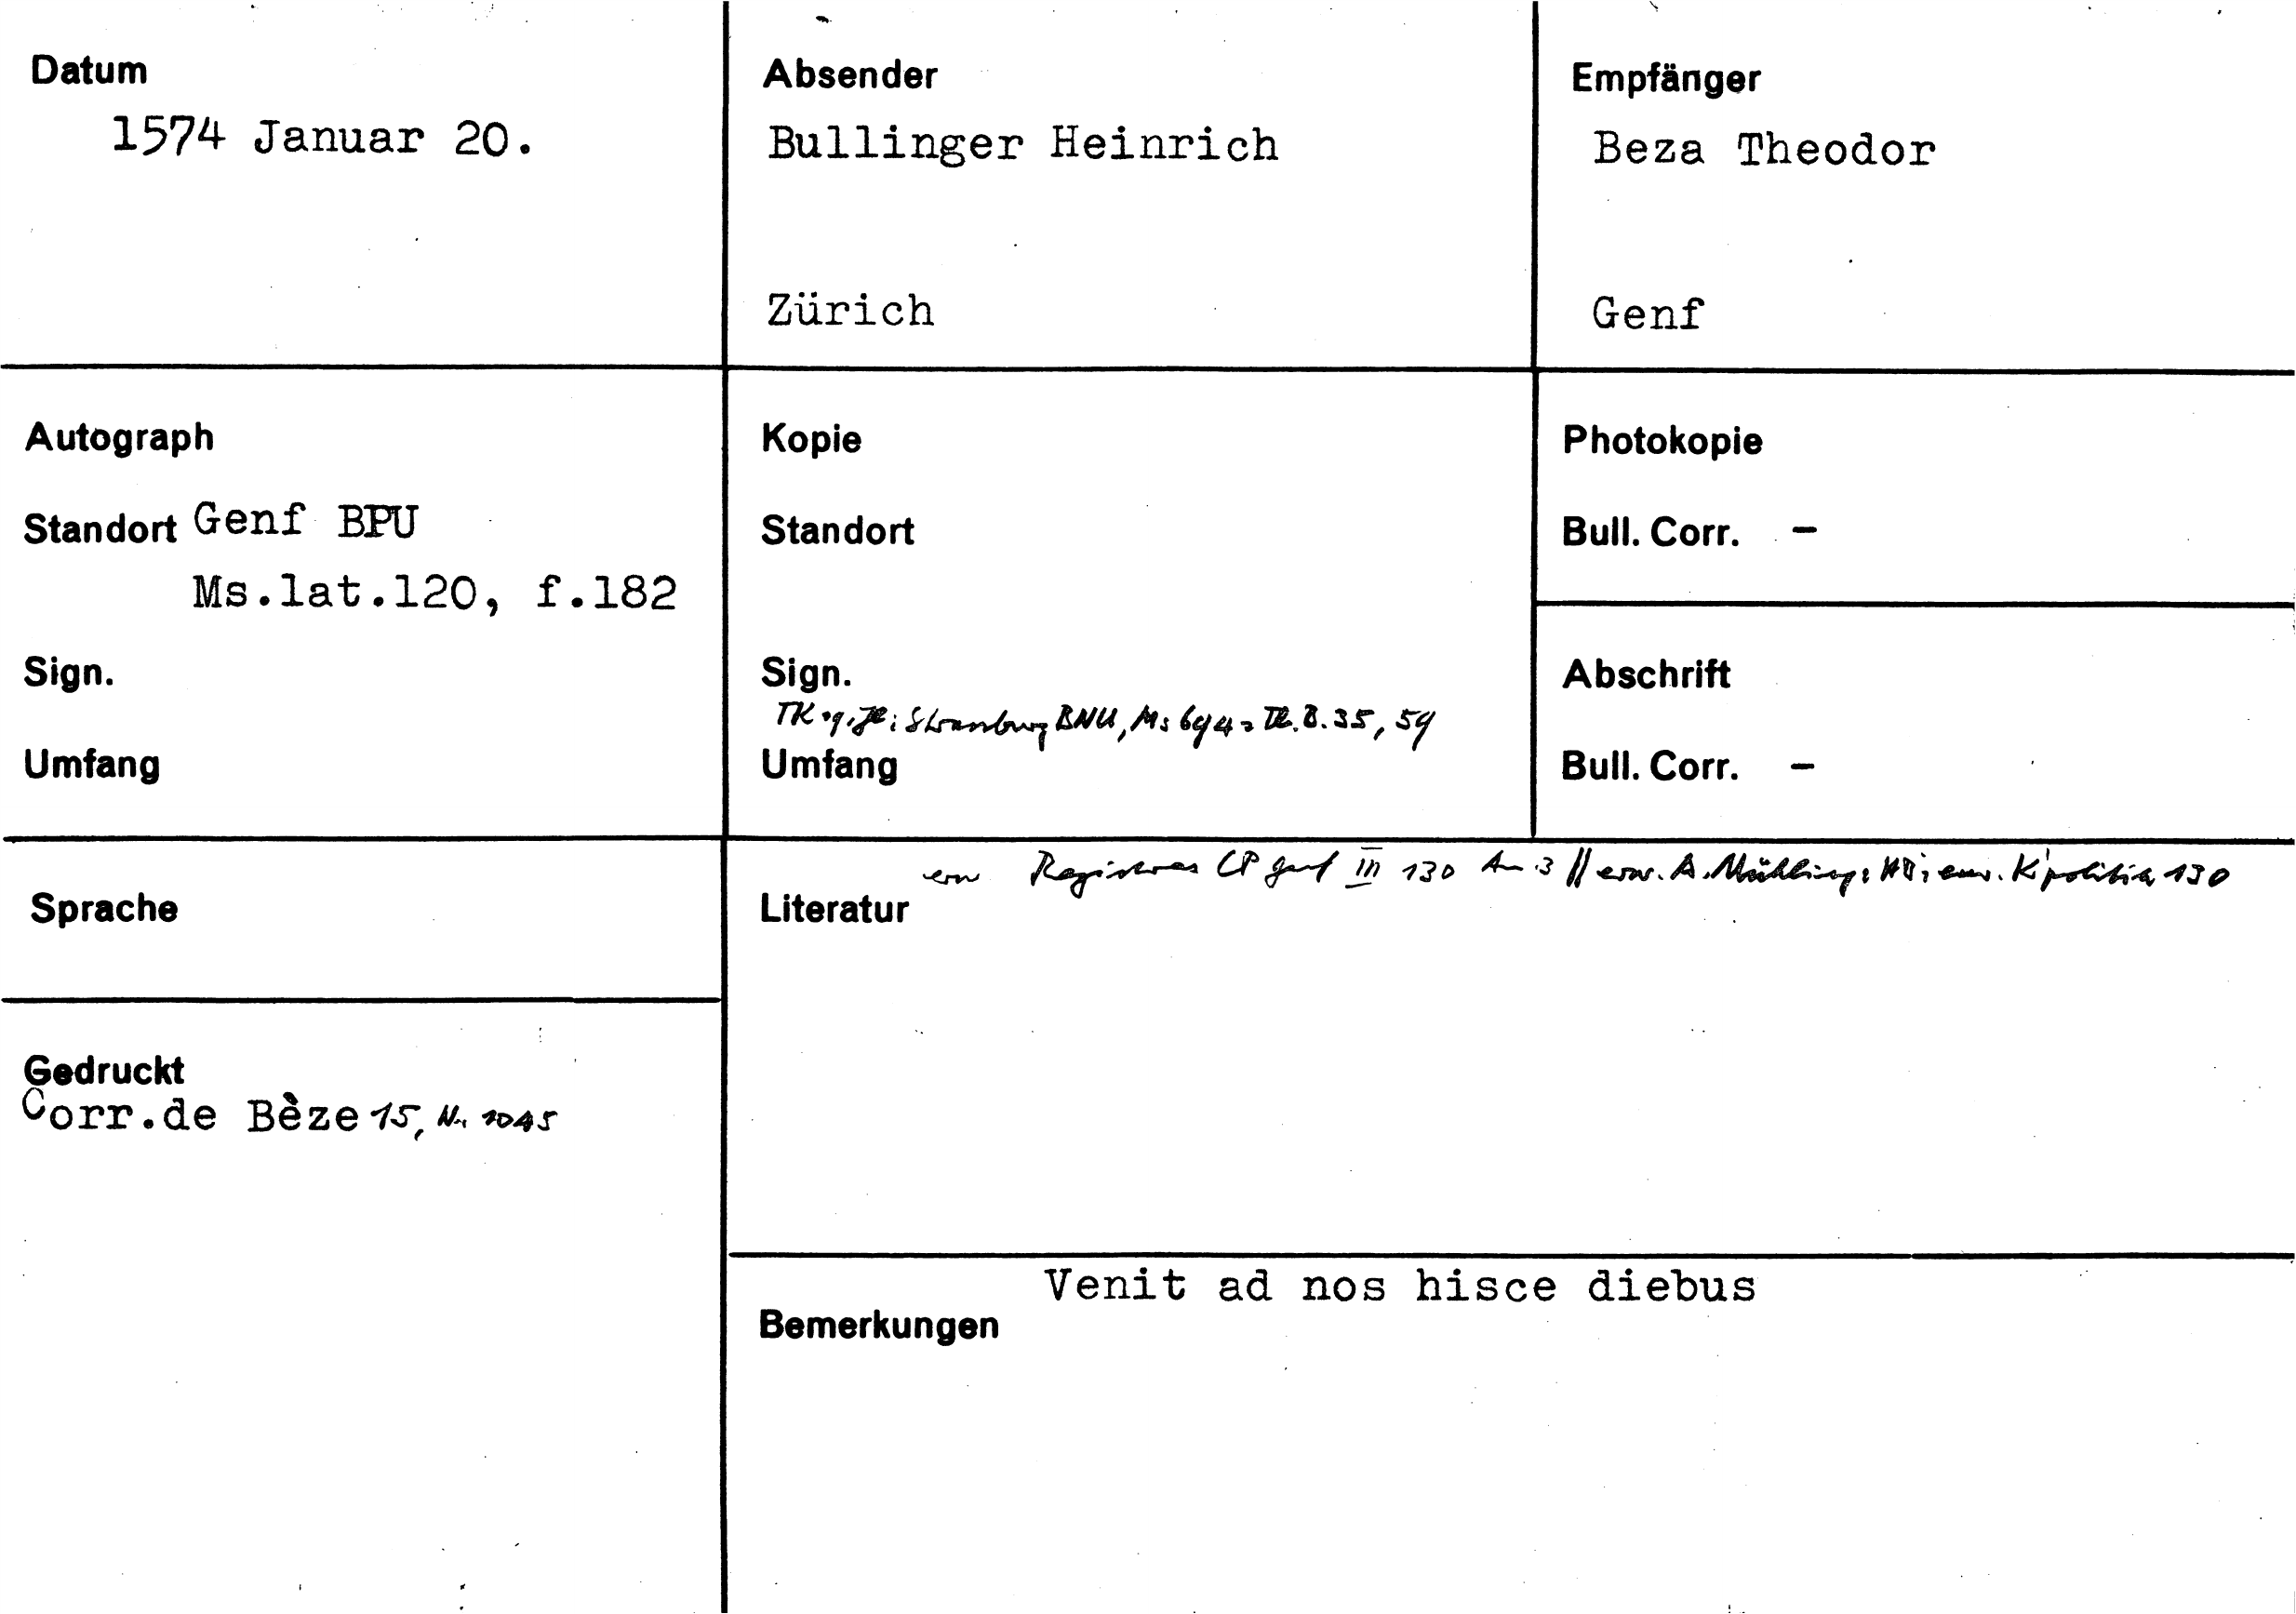 Datum
1574 Januar 20.
Absender
Bullinger Heinrich
Zürich
Empfänger
Beza Theodor
Genf
Autograph
Standort Genf BPU
Ms.lat.120, f.182
Sign.
Umfang
Kopie
Standort
Sign.
Strassburg BNU, Ms 694 =
Umfang
Photokopie
Bull. Corr. –
Abschrift
Bull. Corr. –
Sprache
Gedruckt
Corr.de Bèze 15, Nr. 1045
erw. Registres CP Genf III 130 // erw. A. Mühling: HB, eur. K'politik 130
Literatur
Venit ad nos hisce diebus
Bemerkungen